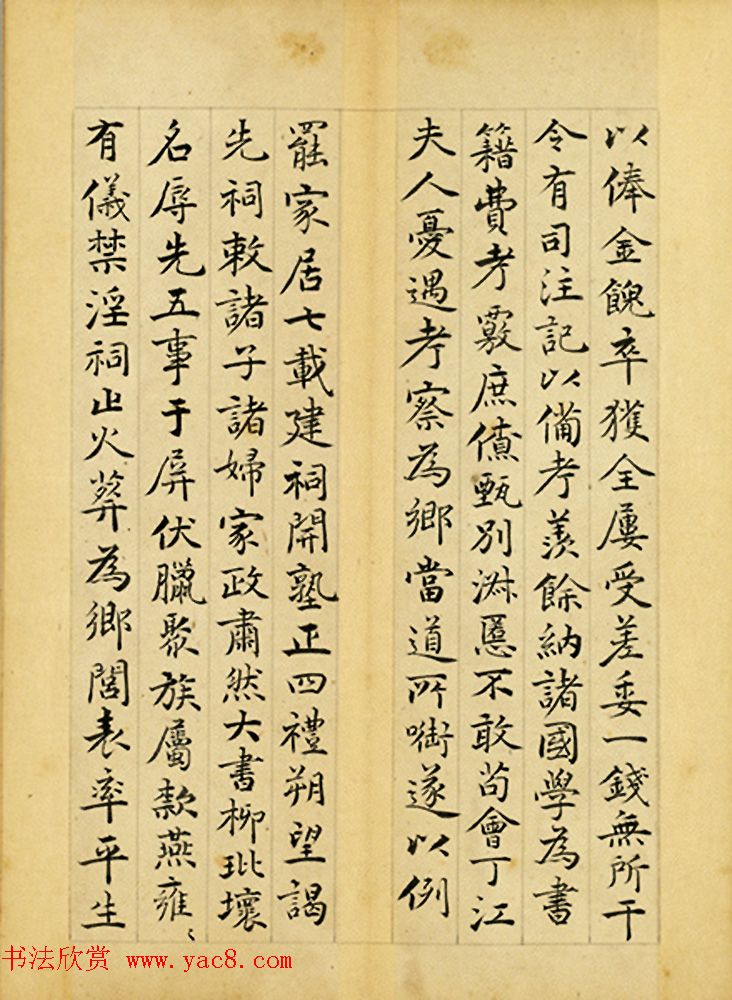 以俸金餽卒獲全屢受差委一錢無所干
令有司注記以備考羡餘納諸國學為書
籍費考覈庶僚甄别淑慝不敢苟會丁江
夫人憂遇考察為鄉當道所啣遂以例
罷家居七載建祠開塾正四禮朔望謁
先祠敕諸子諸婦家政肅然大書柳玭壞
名辱先五事于屏伏臘聚族屬款燕雍〻
有儀禁淫祠止火葬為鄉閭表率平生
书法欣赏 www.yac8.com